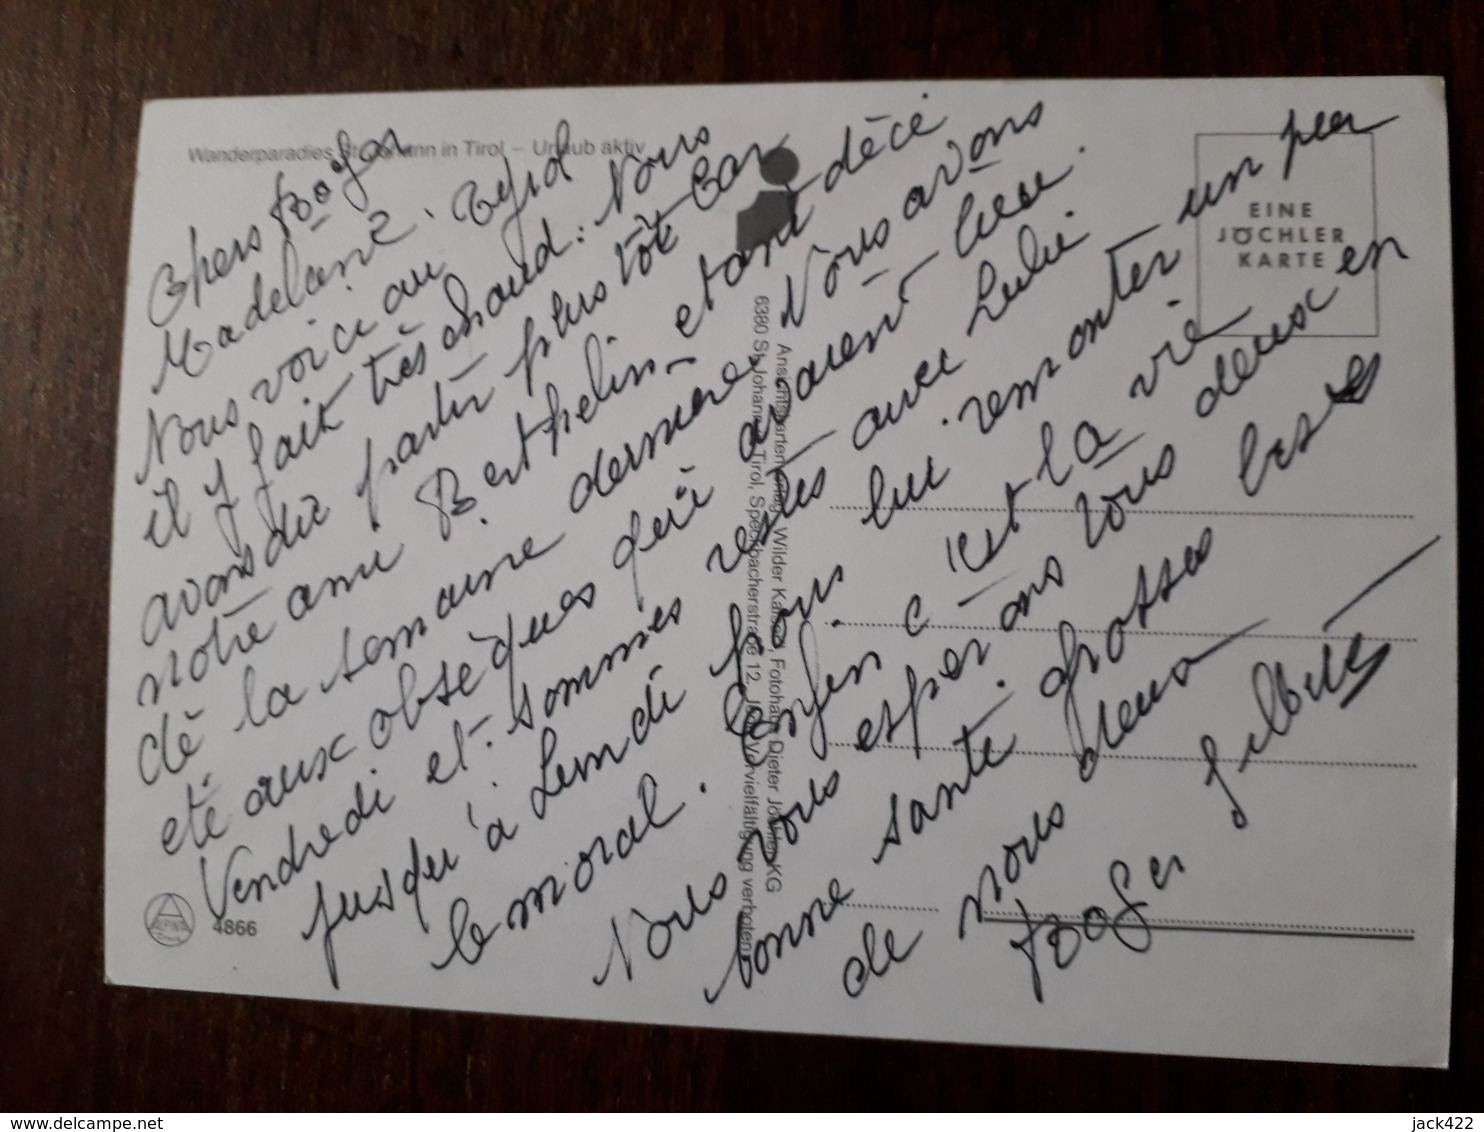 Wanderparadies St. Johann in Tirol – Urlaub aktiv
Chers Roger
Madeleine.
Nous voici au Tyrol
il y fait très chaud: Nous
avons dû partir plus tôt Car
notre ami Berthelin – etant décé
dé la semaine dernière Nous avons
eté aux obsèques qui avaient lieu
Vendredi et sommes restés avec Lulu
jusqu'à Lundi pour lui remonter un peu
le moral. Enfin c'est la vie
Nous vous esperons tous deux en
bonne santé. grosses bises
de nous deux
Roger Gilberte
EINE
JÖCHLER
KARTE
Ansichtskartenverlag, Wilder Kaiser, Fotohaus Dieter Jöchler KG
6380 St. Johann in Tirol, Speckbacherstraße 12, Jede Vervielfältigung verboten
ALPINA
4866
www.delcampe.net
jack422